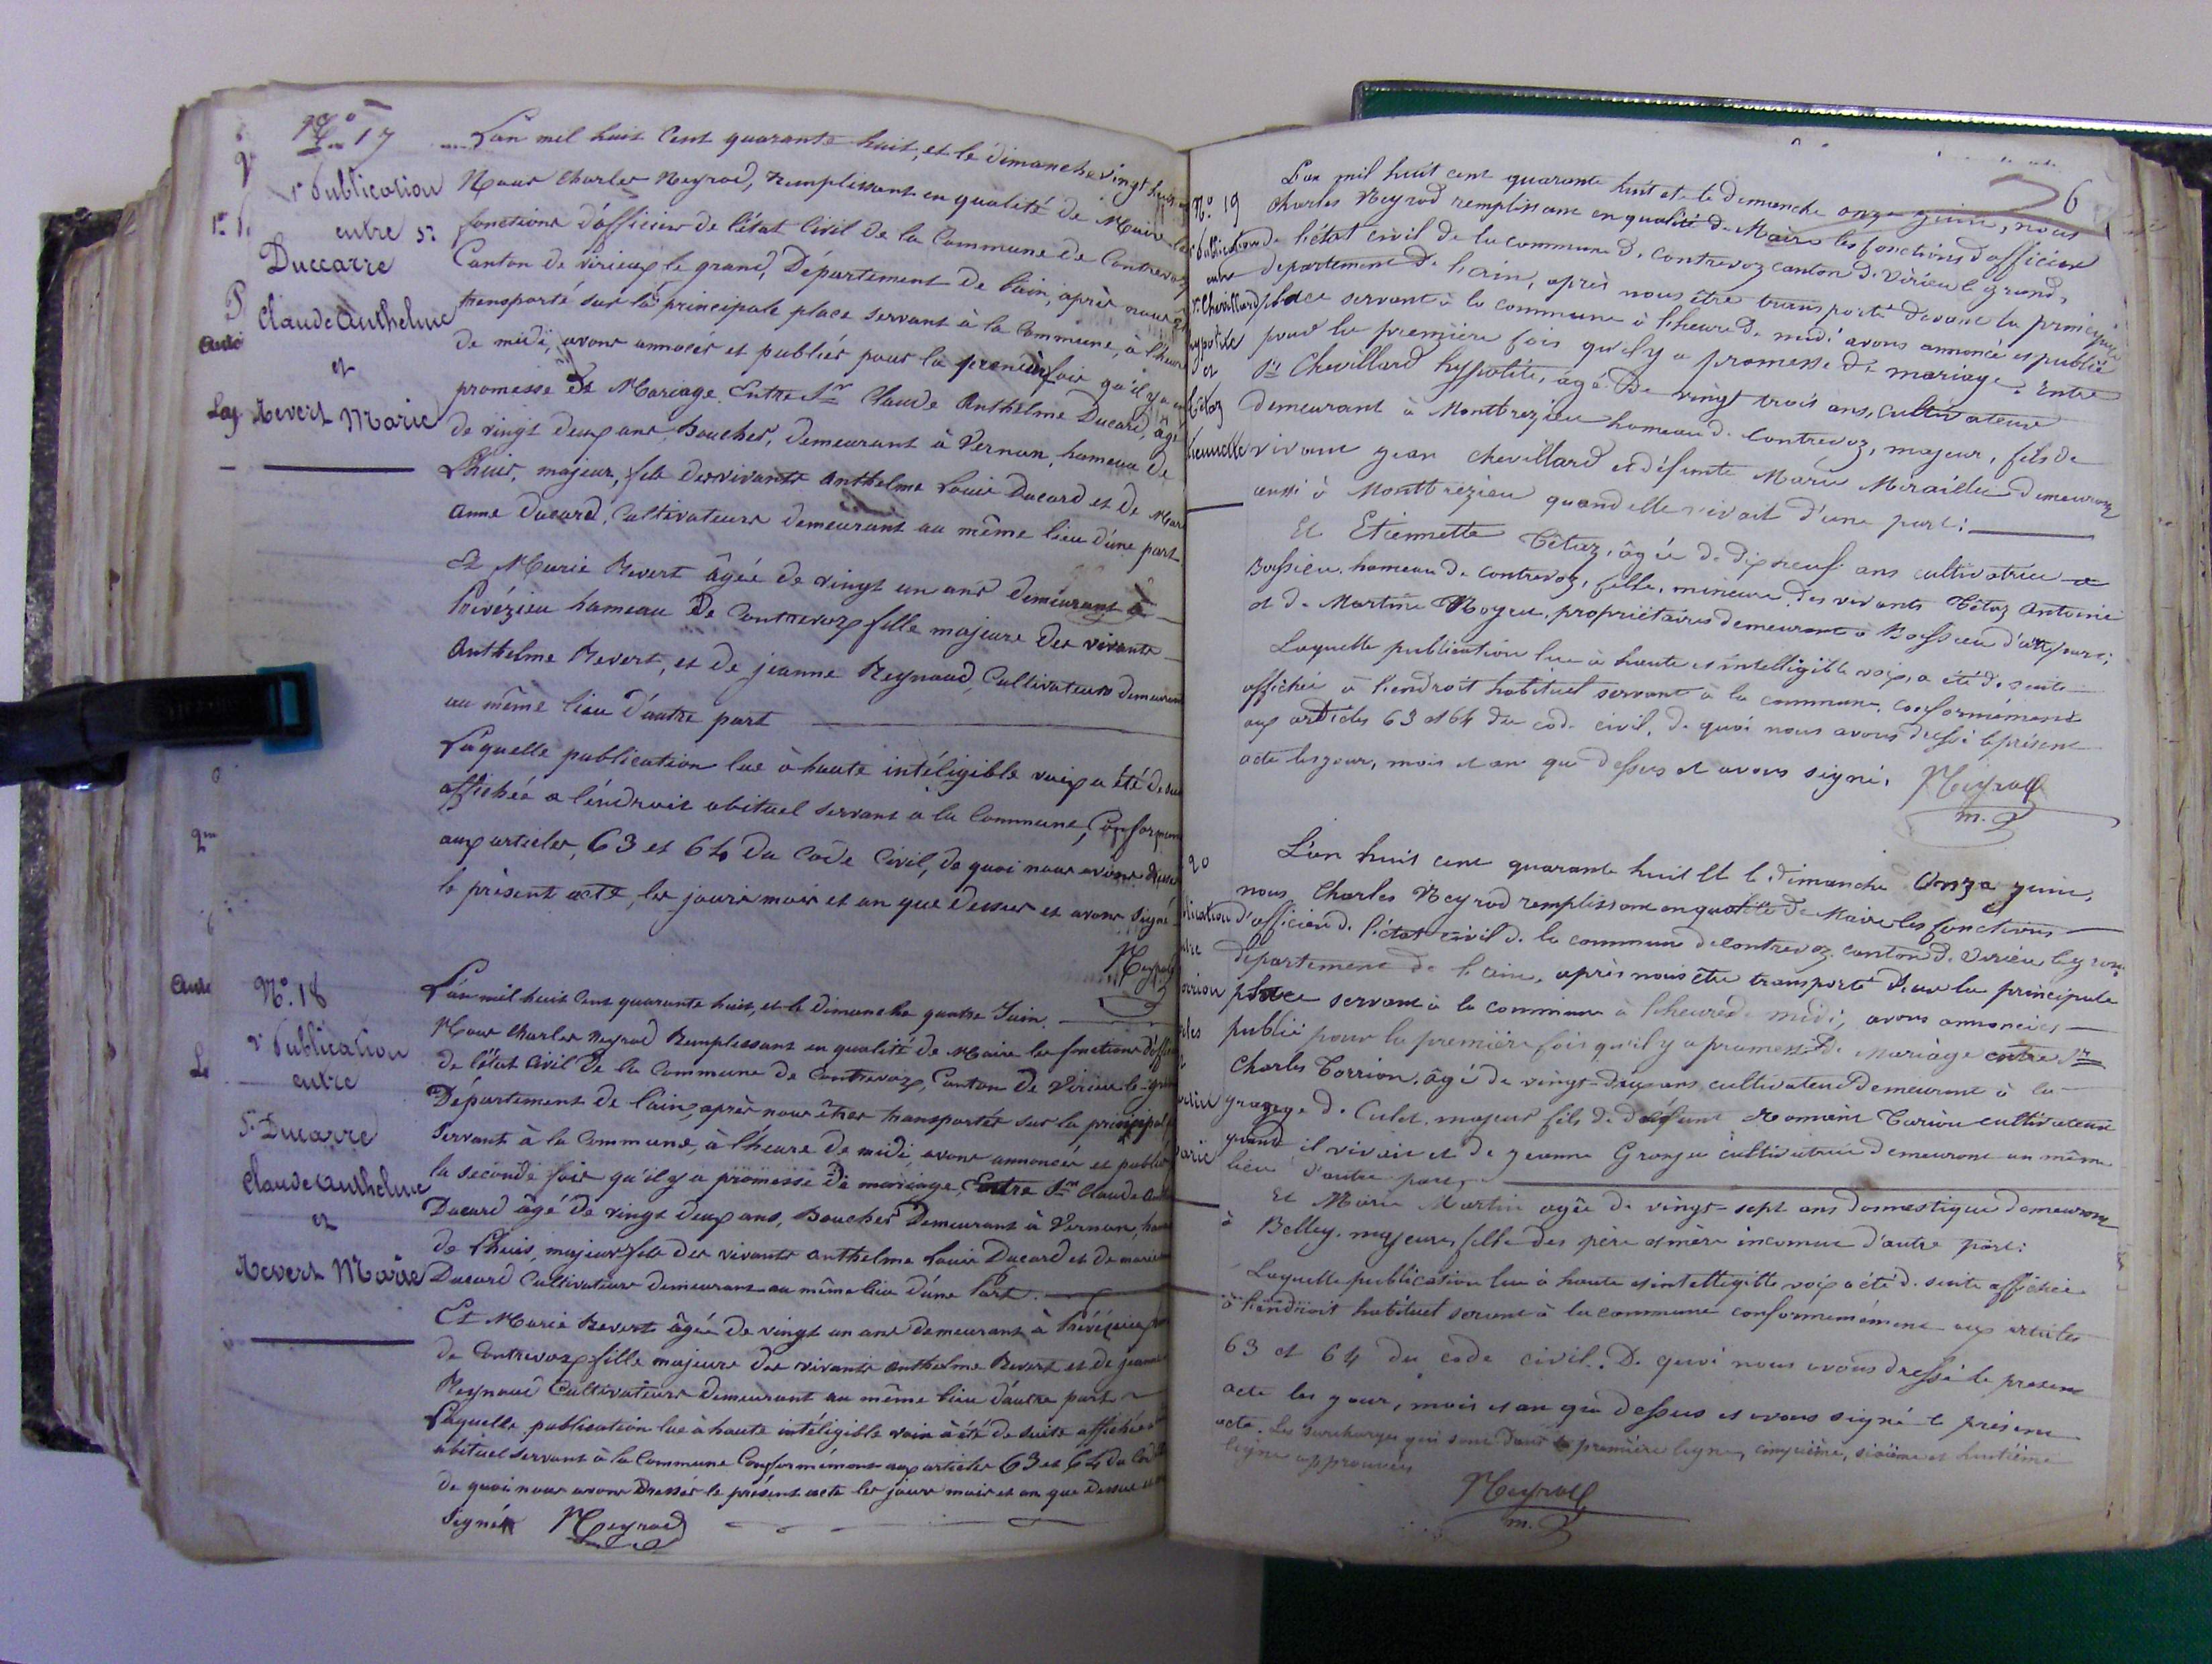 N.o 17
1e Publication
entre sr
Duccarre
Claude Anthelme
et
Revert Marie
L'an mil huit Cent quarante huit, et le dimanche vingt huit
Nous Charles Neyrod, remplissant en qualité de Maire les
fonctions d'officier de l'état Civil de la Commune de Contrevoz
Canton de Virieux le grand, Département de l'ain, après nous
transporté sur la principale place servant à la Commune, à l'heure
de midi, avons annocés et publiés pour la première fois qu'il y a
promesse de Mariage. Entre Sr Claude Anthélme Ducard, âgé
de vingt deux ans, Boucher, demeurant à Vernon, hameau de
Lhuis, majeur, fils des vivants Anthelme Louis Ducard et de
Anne Ducard, Cultivateurs demeurant au même lieu d'une part
Et Marie Revert âgée de vingt un ans demeurant à
Prévézieu hameau de Contrevoz fille majeure des vivants
Anthelme Revert, et de jeanne Reynaud, Cultivateurs demeurant
au même lieu d'autre part
Laquelle publication lue à haute intéligible voix a été de
affichée a l'éndroit abituel servant a la Commune, Conformement
aux articles, 63 et 64 du Code Civil, de quoi nous avons dressé
le présent acte, les jours mois et an que dessus et avons signé
Neyrod
N.o 18
2e Publication
entre
Sr Ducarre
Claude Anthelme
et
Revert Marie
L'an mil huit Cent quarante huit, et le dimanche quatre Juin.
Nous Charles Neyrod Remplissant en qualité de Maire les fonctions
de l'état Civil de la Commune de Contrevoz, Canton de Virieu le grand
Département de l'ain, après nous êtres transportés sur la principale
Servant à la Commune, à l'heure de midi, avons annoncés et publiés
la seconde fois qu'il y a promesse de mariage, Entre Sr Claude
Ducard âgé de vingt deux ans, Boucher Demeurant à Vernon,
de Lhuis, majeur, fils des vivants Anthelme Louis Ducard et de marie
Ducard Cultivateurs demeurant au même lieu d'une Part.
Et Marie Revert âgée de vingt un ans demeurant à
de Contrevoz fille majeure des vivants Anthelme Revert et de jeanne
Reynaud Cultivateurs demeurant au même lieu d'autre part
Laquelle publication lue à haute intéligible voix à été de suite affichée
abituel servant à la Commune Conformément aux articles 63 et 64 du
de quoi nous avons Dressés le présent acte les jours mois et an que dessus
Signé Neyrod
6
N.o 19
Publication
entre
Sr Chevillard
hypolite
et
Tétaz
L'an mil huit cent quarante huit et le dimanche onze juin, nous
Charles Neyrod remplissant en qualité de Maire les fonctions d'officier
de l'état civil de la commune de contrevoz canton de Virieu le grand,
département de l'ain, après nous être transporté devant la principale
place servant à la commune à l'heure de midi avons annoncé et publié
pour la première fois qu'il y a promesse de mariage. Entre
Sr Chevillard hyppolite, âgé de vingt trois ans, cultivateur
demeurant à Montbrezieu hameau de Contrevoz, majeur, fils de
vivant jean chevillard et défunte Marie demeurant
aussi à Montbrezieu quand elle vivait d'une part;
Et Etiennette Tétaz, âgée de dix neuf ans cultivatrice a
Boissieu, hameau de contrevoz, fille, mineure des vivants Tétaz Antoine
et de Martine propriétaires demeurant à Boissieu d'autre part;
Laquelle publication lue à haute et intelligible voix, a été de suite
affichée à l'endroit habituel servant à la commune, conformément
aux articles 63 et 64 du code civil, de quoi nous avons dressé le présent
acte les jour, mois et an que dessus et avons signé.
Neyrod
m.
20
L'an huit cent quarante huit Et le dimanche Onze juin,
nous, Charles Neyrod remplissant en qualité de Maire les fonctions
d'officier de l'état civil de la commune de contrevoz, canton de Virieu le grand
département de l'ain, après nous être transporté devant la principale
place servant à la commune à l'heure de midi, avons annoncés
publié pour la première fois qu'il y a promesse de Mariage entre Sr
Charles Torrion, âgé de vingt-deux ans, cultivateur demeurant à la
grange de Culet, majeur fils de défunt Romain cultivateur
quand il vivait et de jeanne cultivatrice demeurant au même
lieu d'autre part.
Et Marie Martin agée de vingt-sept ans domestique demeurant
à Belley, majeure, fille des père et mère inconnue d'autre part:
Laquelle publication lue à haute et intelligible voix a été de suite affichée
à l'endroit habituel servant à la commune conformemément aux articles
63 et 64 du code civil. De quoi nous avons dressé le présent
acte les jour, mois et an que dessus et avons signé le présent
acte. Les surcharges qui sont dans la première ligne, cinquième, sixième et huitième
ligne approuvées
Neyrod
m.